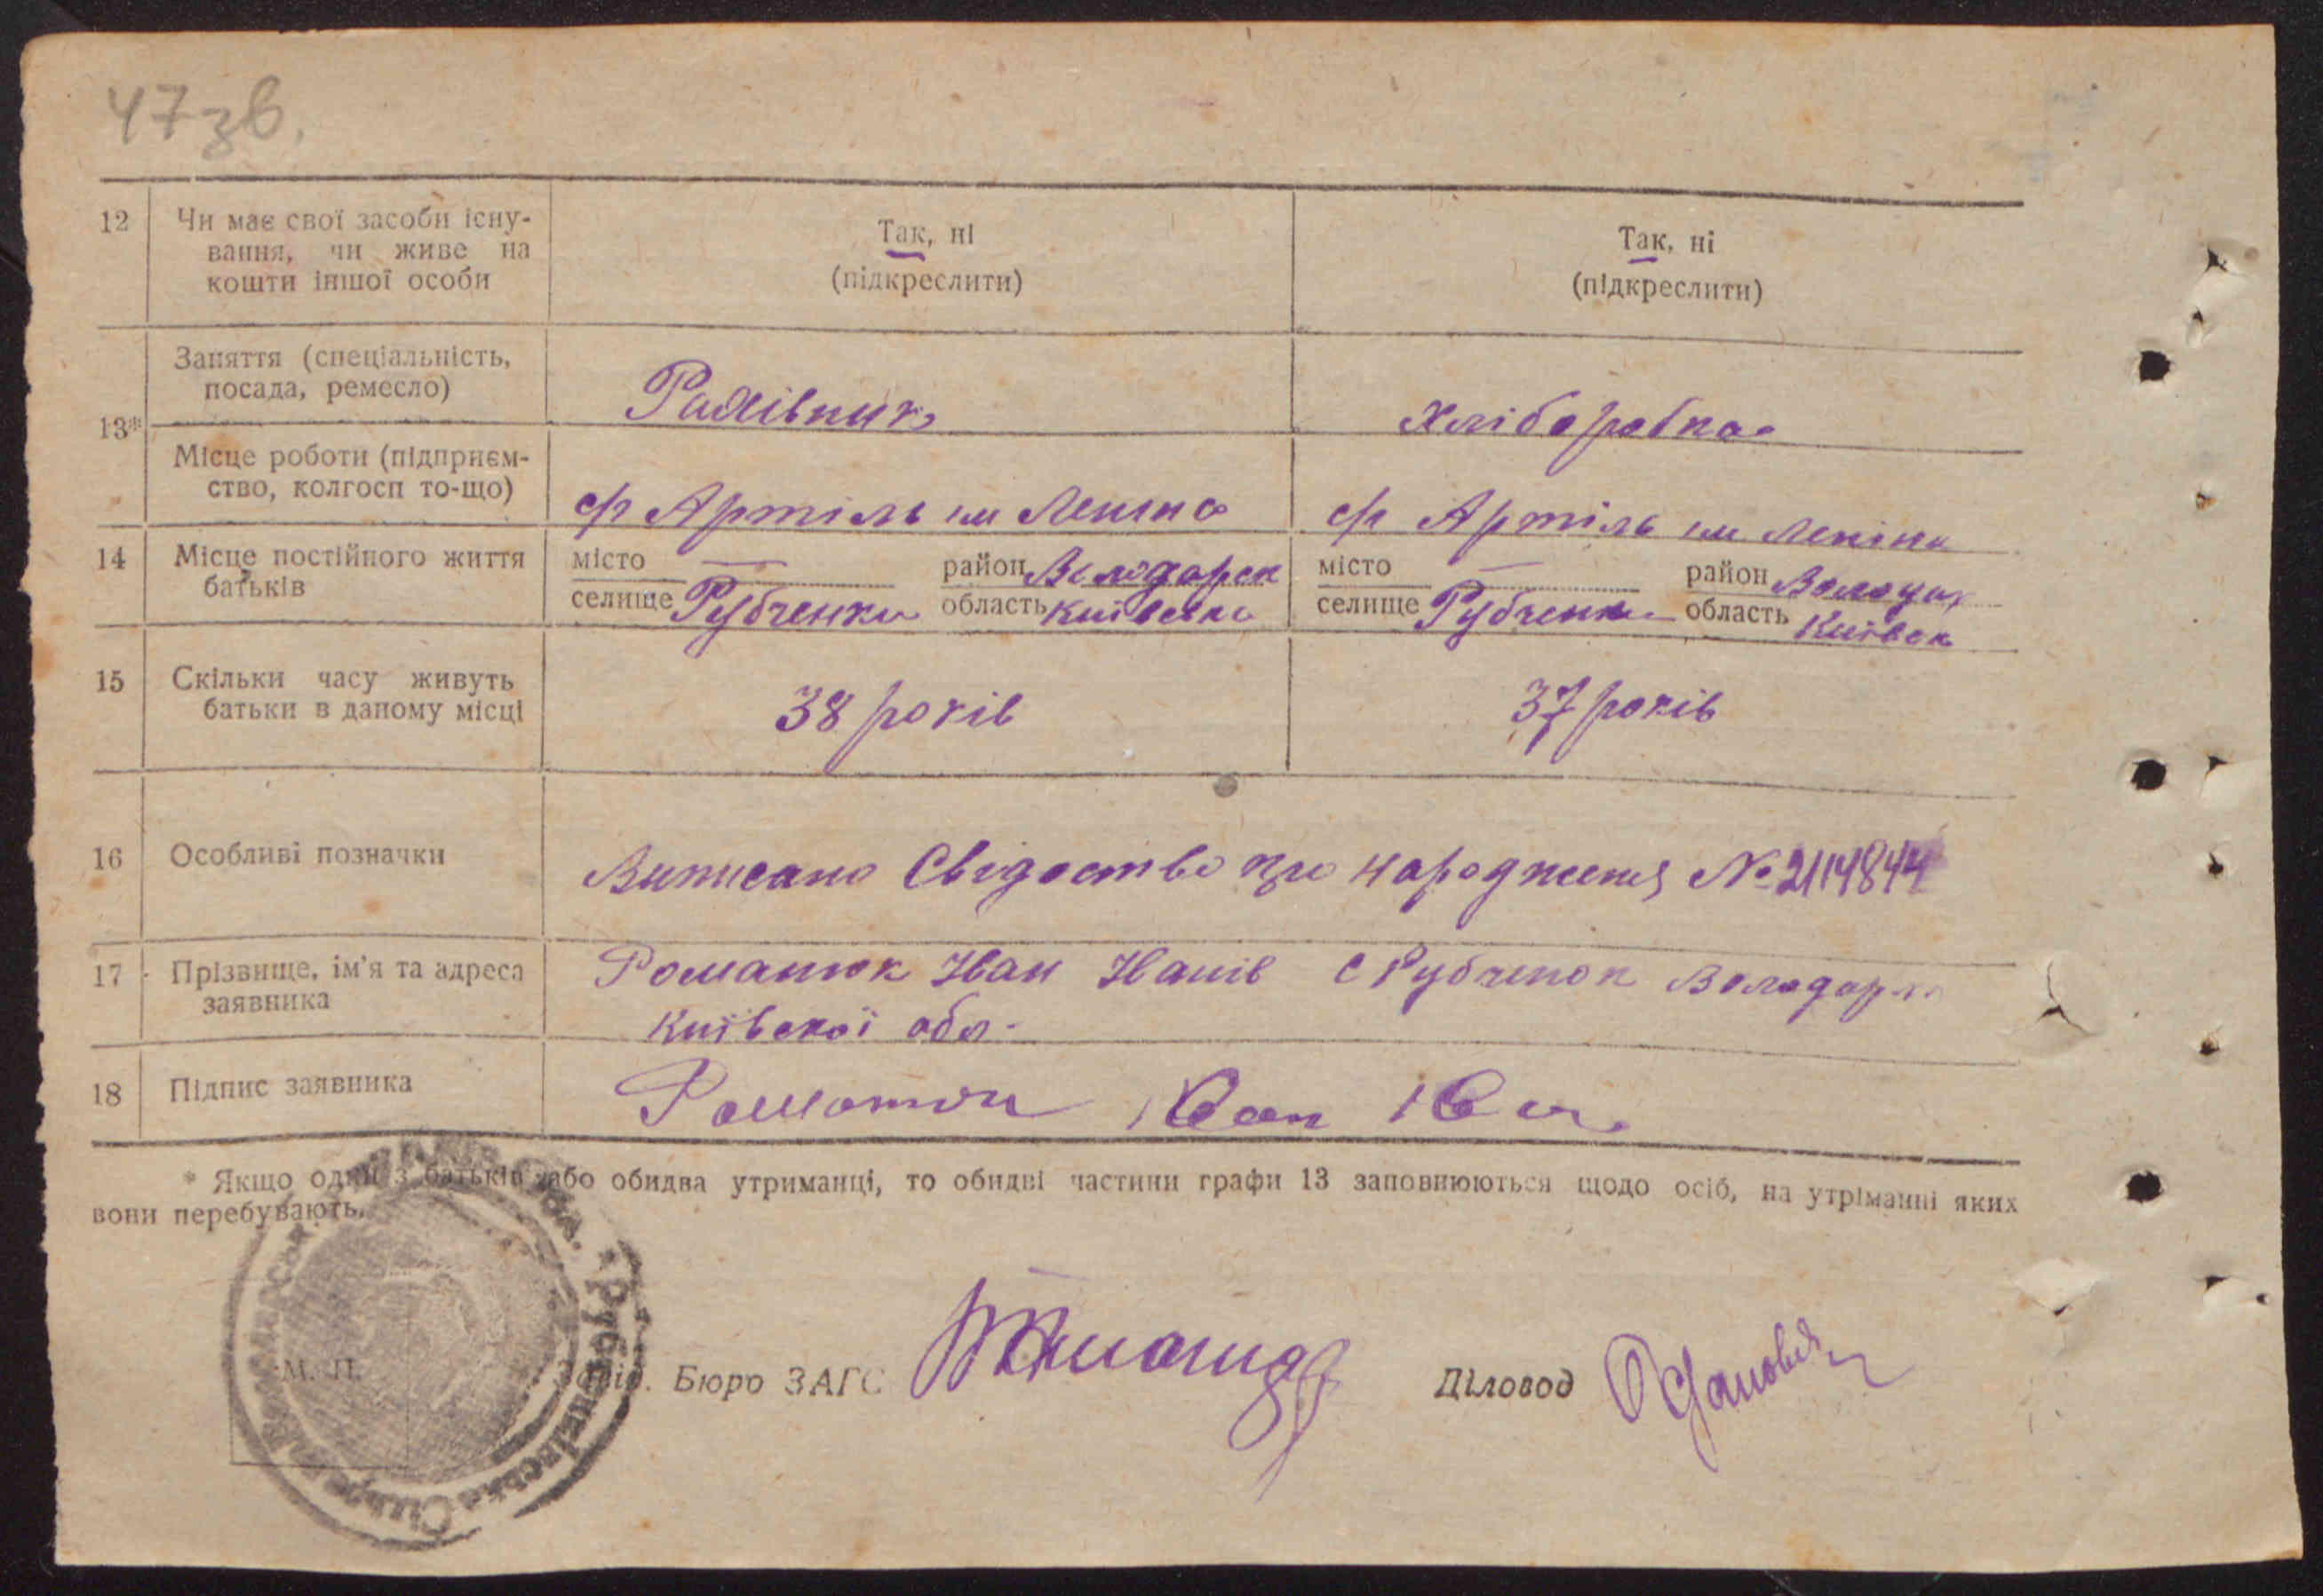 47зв.
12 Чи має свої засоби існу- Так, ні Так, ні
вання, чи живе на (підкреслити) (підкреслити)
кошти іншої особи
13* Заняття (спеціальність,
посада, ремесло) хліборобка
Місце роботи (підприєм-
ство, колгосп то-що) с/г Артіль им Леніна с/г Артіль им Леніна
14 Місце постійного життя місто — район Володарск місто — район Володар
батьків селище Рубченки область Київська селище Рубченки область Київск
15 Скільки часу живуть 38 років 37 років
батьки в даному місці
16 Особливі позначки Виписано Свідоство про народження № 2114844
17 Прізвище, ім'я та адреса Романюк Іван с Рубченок Володар
заявника Київскої обл.
18 Підпис заявника Романюк Іван Ів
* Якщо один з батьків або обидва утриманці, то обидві частини графи 13 заповнюються щодо осіб, на утріманні яких
вони перебувають.
М. П. Завід. Бюро ЗАГС Діловод